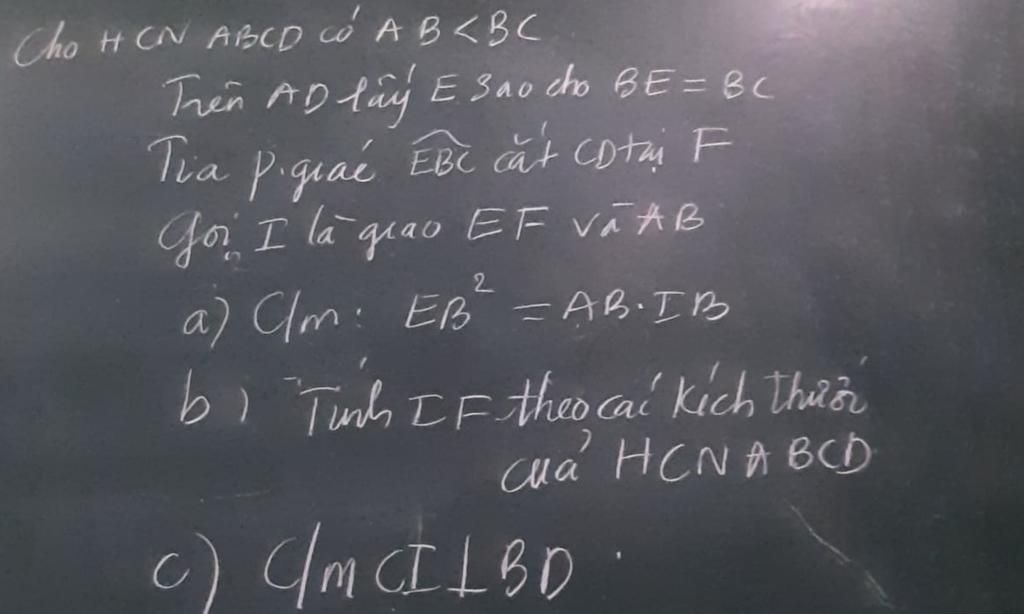 Cho HCN ABCD có AB < BC
Trên AD lấy E sao cho BE = BC
Tia p.giác EBC cắt CD tại F
Gọi I là giao EF và AB
a) C/m: EB² = AB.IB
b) Tính IF theo các kích thước
của HCN ABCD
c) C/m CI ⊥ BD.